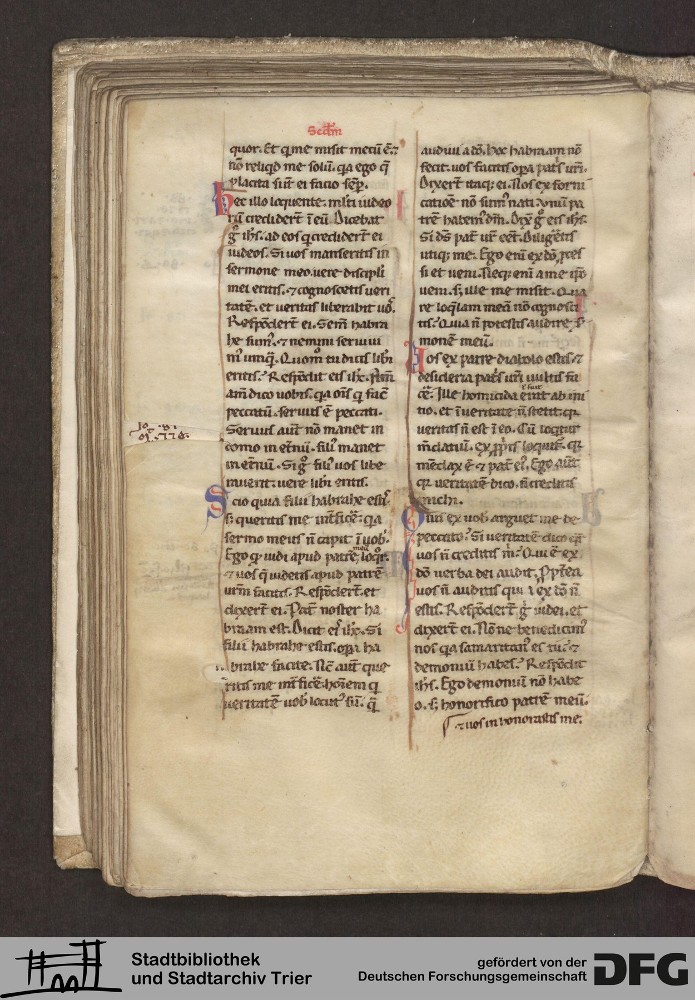 Scdm
quor. Et q̄ me misit mecū ē. ⁊
nō reliqd me solū. qa ego q̄
placita sūt ei facio sēp.
Hec illo loquente. mlti iudeo
rū credidert ī eū. Dicebat
g̊ ihs. ad eos q̄ crediderť ei
iudeos. Si uos manseritis in
sermone meo. uere discipli
mei eritis. ⁊ cognoscetis ueri
tatē. et ueritas liberabit uos.
Respōderť ei. Sem̄ habra
he sumꝰ. ⁊ nemini seruiui
mꝰ umq̄. Quom̄ tu dicis libi
eritis. Respōdit eis ihc.
am̄ dico uobis. qa oīs q̄ facit
peccatū. seruus ē peccati.
Seruus aut̄ nō manet in
domo in etnū. filiꝰ manet
in etnū. Si g̊ filiꝰ uos libe
rauerit: uere libi eritis.
Scio quia filii habrahe estis.
s; queritis me int̄ficē: qa
sermo meus n̄ capit ī uob.
Ego qd uidi apud patrē meū loqr.
⁊ uos q̄ uidetis apud patrē
urm̄ facitis. Respōderť. et
dixerť ei. Pat̄ noster ha
braam est. Dicit eis ihc. Si
filii habrahe estis. opa ha
brahe facite. Nc̄ aut̄ que
ritis me int̄ficē: hoīem q̄
ueritatē uob locutꝰ sū. q̄
Jo. .8.
audiui a dō. hoc habraam nō
fecit. uos facitis opa pat̄s ur̄i.
Dixerť itaq; ei. Nos ex forni
catiōe nō sumꝰ nati. unū pa
trē habemꝰ dm̄. Dix̄ g̊ eis ihs.
Si ds̄ pat̄ ur̄ eēt. diligeretis
utiq; me. Ego enī ex dō pces
si et ueni. Neq; enī a me ipō
ueni. s; ille me misit. Qua
re loqlam meā nō cognosci
tis? Quia n̄ potestis audire s̄
monē meū.
Uos ex patre diabolo estis. ⁊
desideria pat̄s ur̄i uultis fa
cē. Ille homicida erat ab ini
tio. et ī ueritate n̄ stetit: qr
ueritas n̄ est ī eo. Cū loqitur
mdatiū. ex ppis loquit̄. qr
mēdax ē ⁊ pat̄ eiꝰ. Ego aut̄
qr ueritatē dico. n̄ creditis
michi.
Quis ex uob arguet me de
peccato? Si ueritatē dico qr
uos n̄ creditis m̄? Qui ē ex
dō uerba dei audit. Ppterea
uos n̄ auditis quia ex dō n̄
estis. Respōderť g̊ iudei. et
dixerť ei. Nōne benedicimꝰ
nos qa samaritanꝰ es tu. ⁊
demoniū habes? Respōdit
ihs. Ego demoniū nō habe
o. s; honorifico patrē meū.
⁊ uos inhonorastis me.
Stadtbibliothek
und Stadtarchiv Trier
gefördert von der
Deutschen Forschungsgemeinschaft
DFG